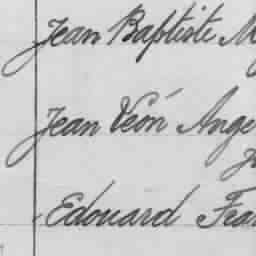 Jean Baptiste M
Jean Véon Ange
Ju
Edouard Fran